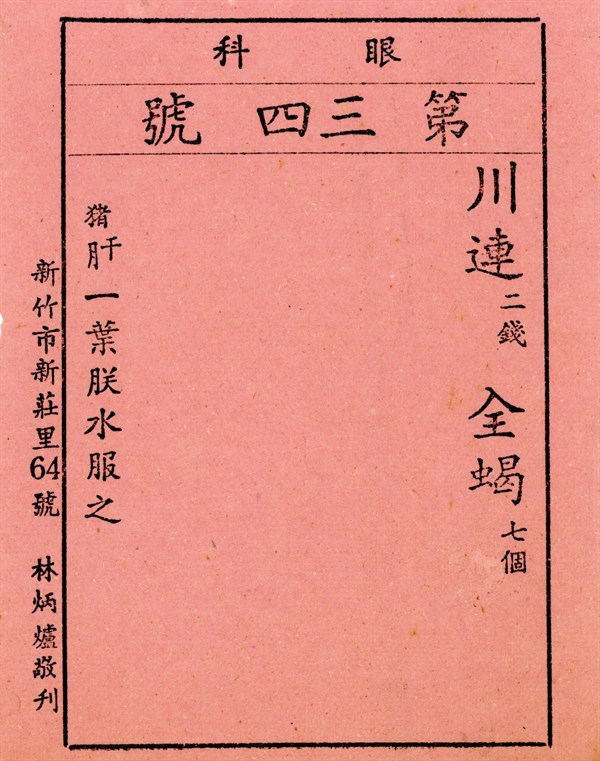 眼科
第三四號
川連二錢 全蝎七個
猪肝一葉朕水服之
新竹市新莊里64號 林炳爐敬刊